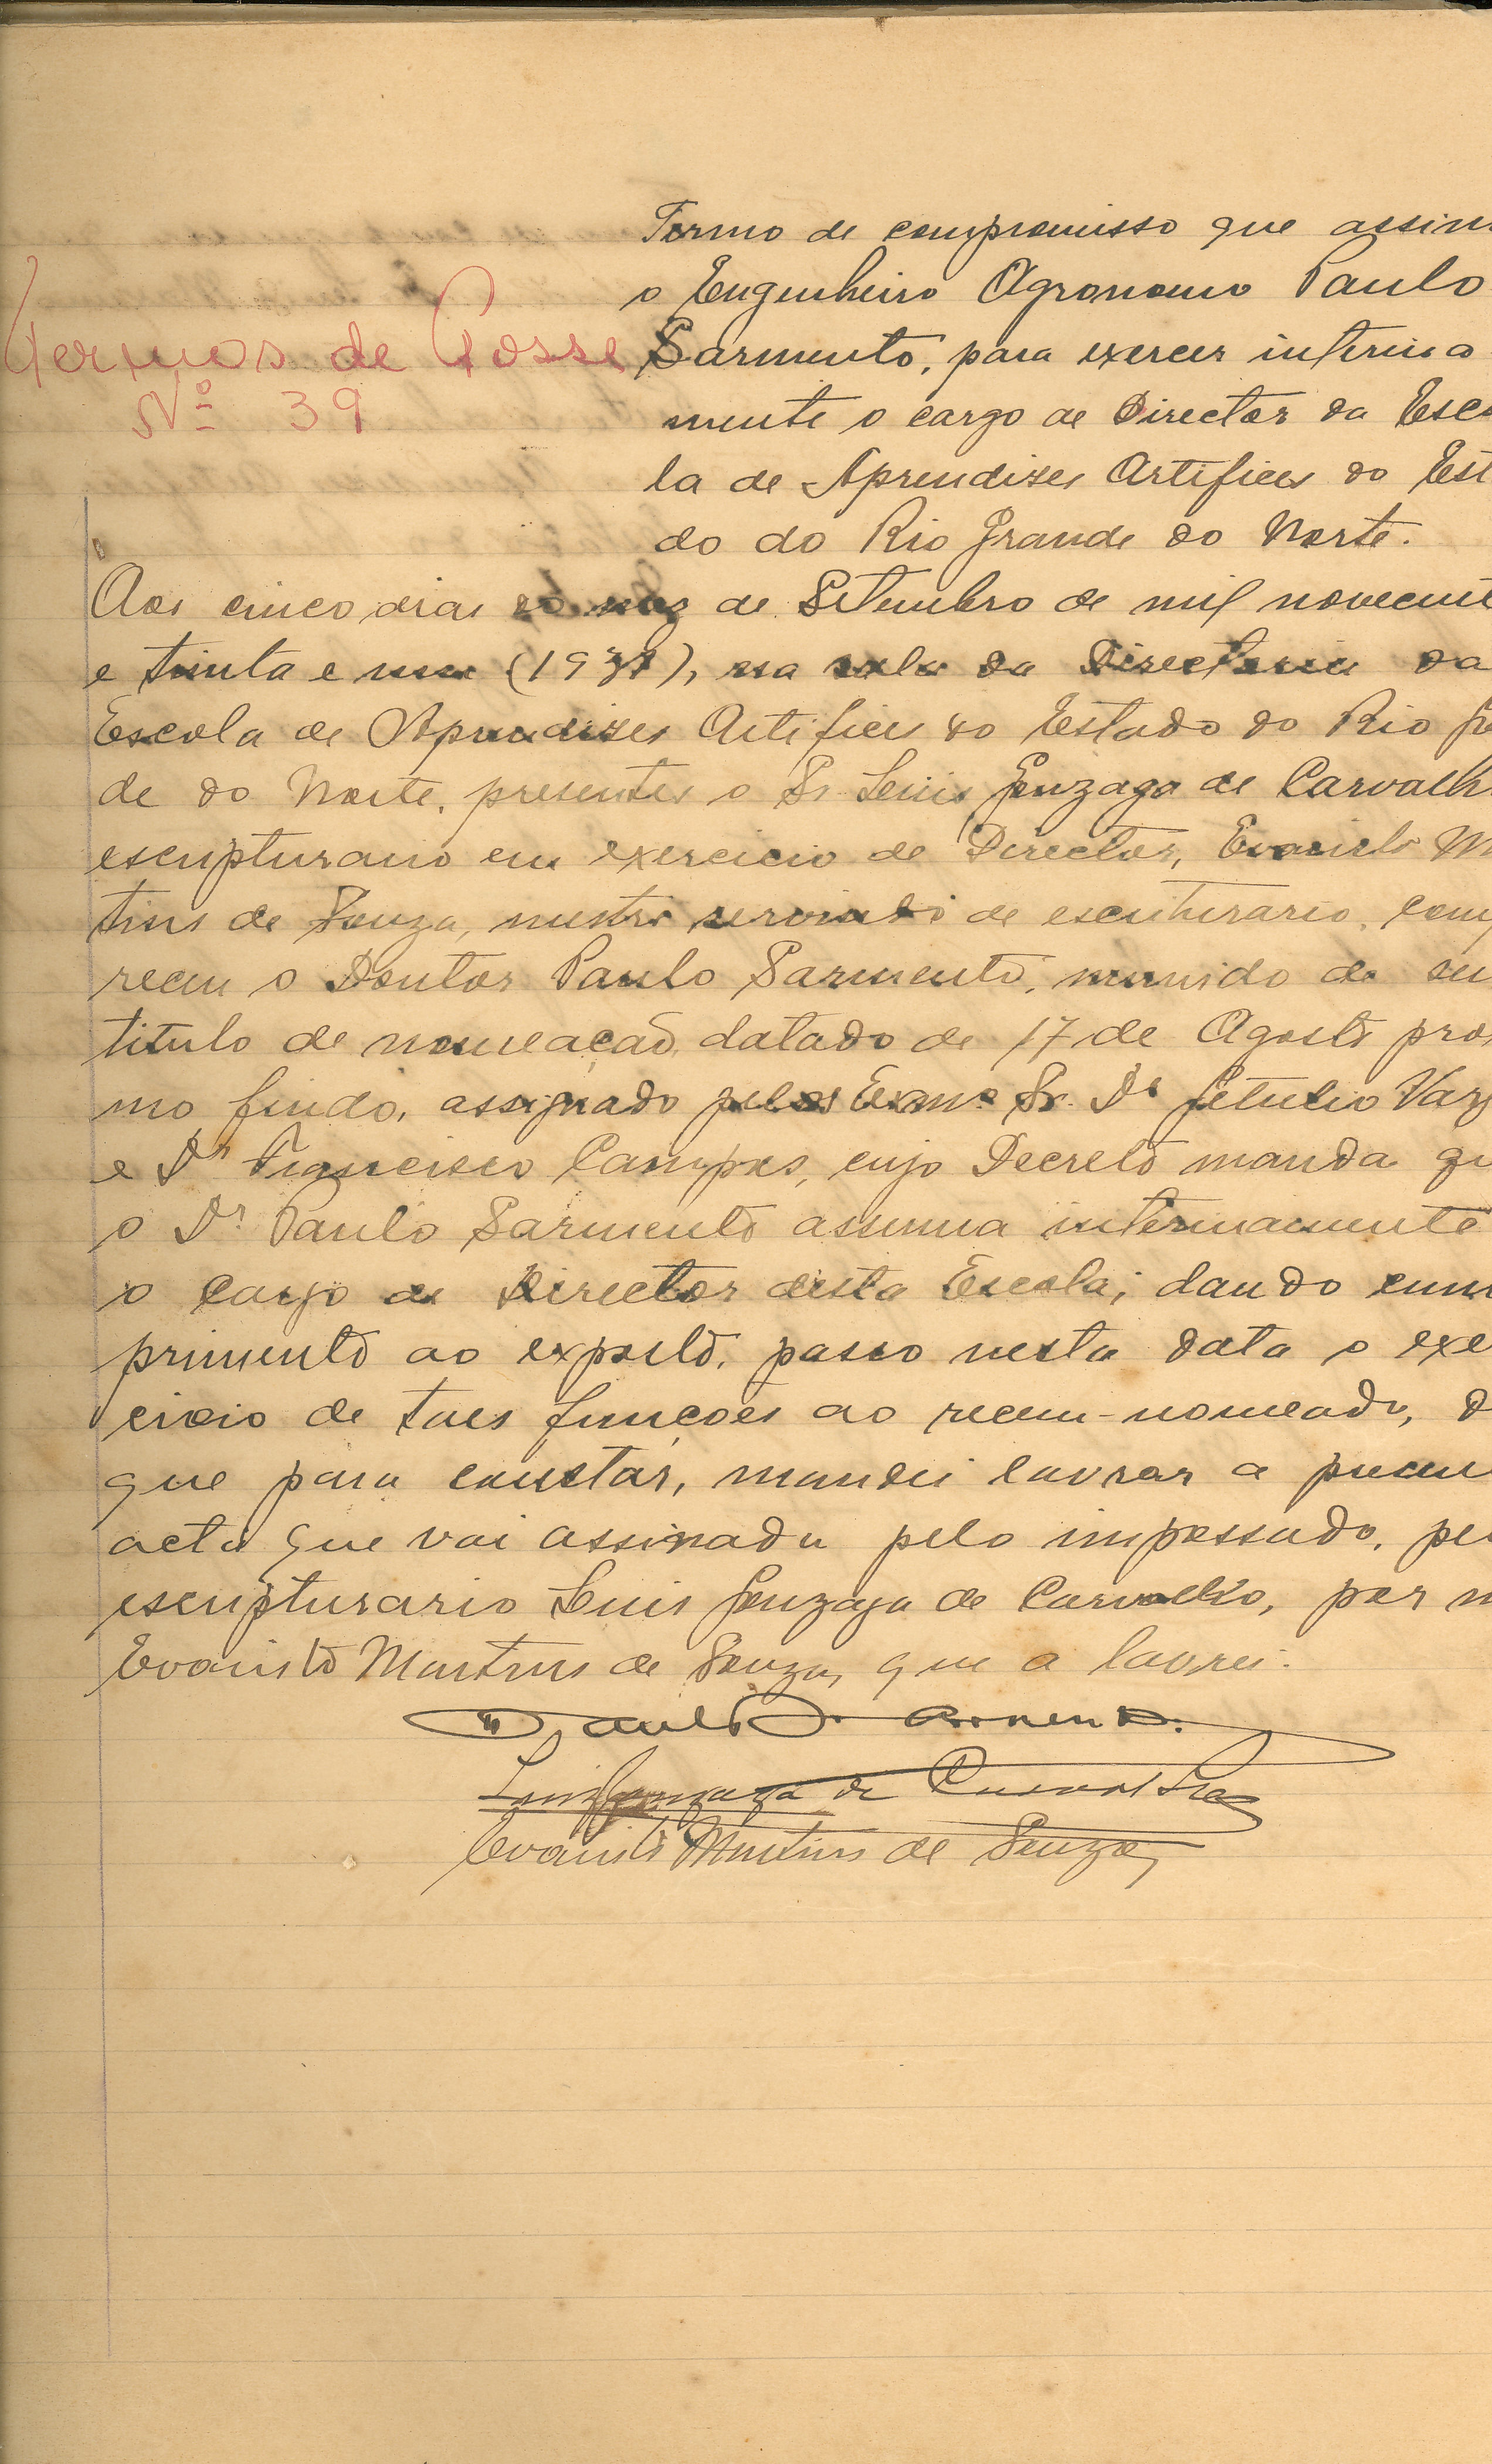 Termo de compromisso que assin
o Engenheiro Agronomo Paulo
Termos de Posse
Sarmento, para exercer interina
Nº 39
mente o cargo de Director da Esco
la de Aprendizes Artifices do Est
do do Rio Grande do Norte.
Aos cinco dias do mez de Setembro de mil novecent
e trinta e um (1931), na sala da Directoria da
Escola de Aprendizes Artifices do Estado do Rio Gr
de do Norte, presentes o Sr. Luis Gonzaga de Carvalh
escripturario em exercicio de Director, Evaristo M
tins de Souza, mestre servindo de escriturario, com
receu o Doutor Paulo Sarmento, munido de su
titulo de nomeação, datado de 17 de Agosto pro
mo findo, assignado pelos Exmº Sr. Dr Getulio Varg
e Dr Francisco Campos, cujo Decreto manda qu
o Dr. Paulo Sarmento assuma interinamente
o cargo de Director desta Escola; dando cum
primento ao exposto, passo nesta data o exe
cicio de taes funcções ao recem-nomeado, d
que para constar, mandei lavrar a presen
acta que vai assinada pelo impossado, pe
escripturario Luis Gonzaga de Carvalho, por m
Evaristo Martins de Souza, que a lavrei.
Paulo Sarmento.
Luis Gonzaga de Carvalho
Evaristo Martins de Souza